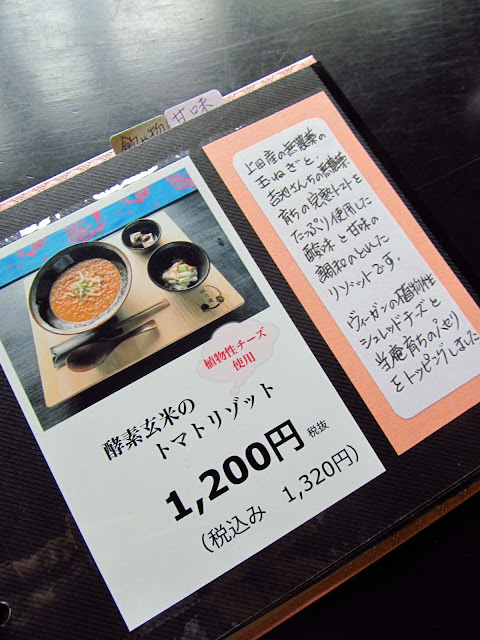 飲み物
甘味
上田産の無農薬の
玉ねぎと、
吉池さんちの無農薬
育ちの完熟トマトを
たっぷり使用した
酸味と甘味の
調和のとれた
リゾットです。
ヴィーガンの植物性
シュレッドチーズと
当庵育ちのパセリ
をトッピングしました
植物性チーズ
使用
酵素玄米の
トマトリゾット
1,200円 税抜
(税込み 1,320円)